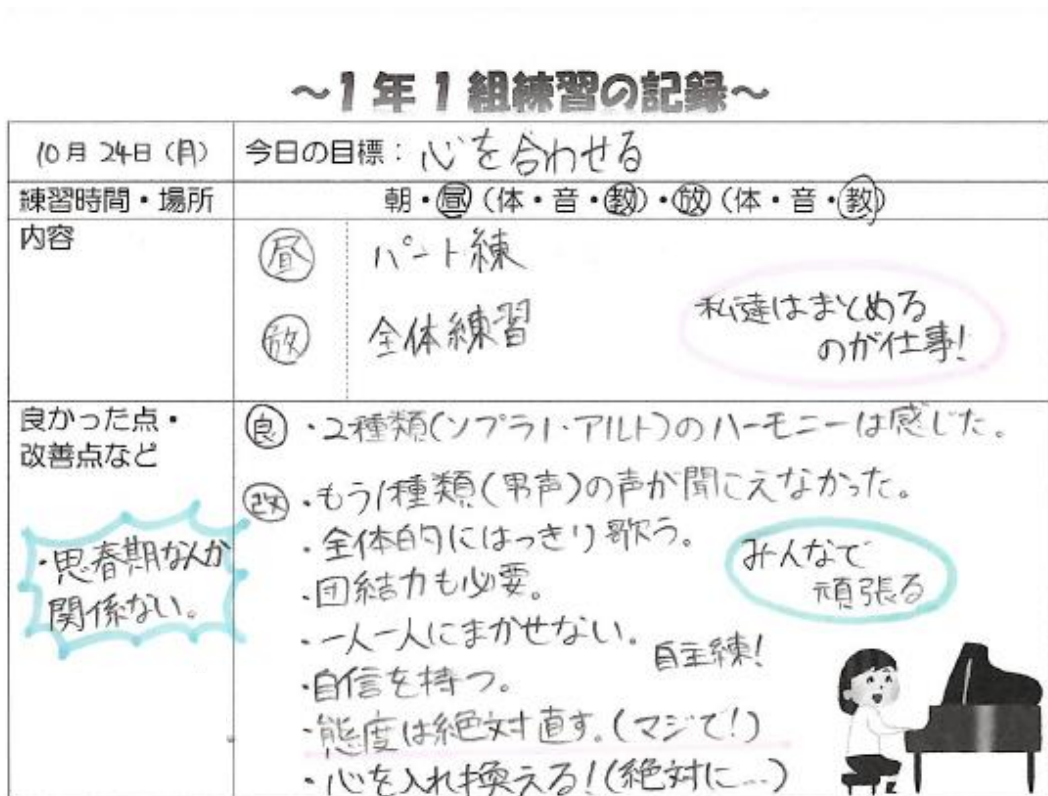 ～1年1組練習の記録～
10月 24日（月） 今日の目標：心を合わせる
練習時間・場所 朝・昼（体・音・教）・放（体・音・教）
内容
昼 パート練
放 全体練習
私達はまとめる
のが仕事!
良かった点・
改善点など
・思春期なんか
関係ない。
良 ・2種類(ソプラノ・アルト)のハーモニーは感じた。
改 ・もう1種類(男声)の声が聞こえなかった。
・全体的にはっきり歌う。
・団結力も必要。
・一人一人にまかせない。
・自信を持つ。
・態度は絶対直す。(マジで!)
・心を入れ換える!(絶対に…)
みんなで
頑張る
自主練!